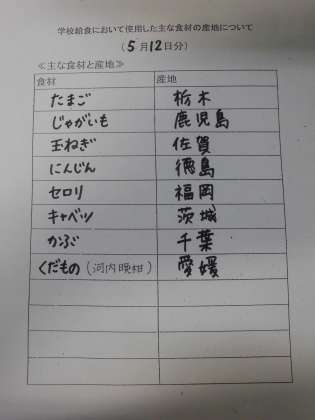 学校給食において使用した主な食材の産地について
(5月12日分)
≪主な食材と産地≫
食材 産地
たまご 栃木
じゃがいも 鹿児島
玉ねぎ 佐賀
にんじん 徳島
セロリ 福岡
キャベツ 茨城
かぶ 千葉
くだもの(河内晩柑) 愛媛